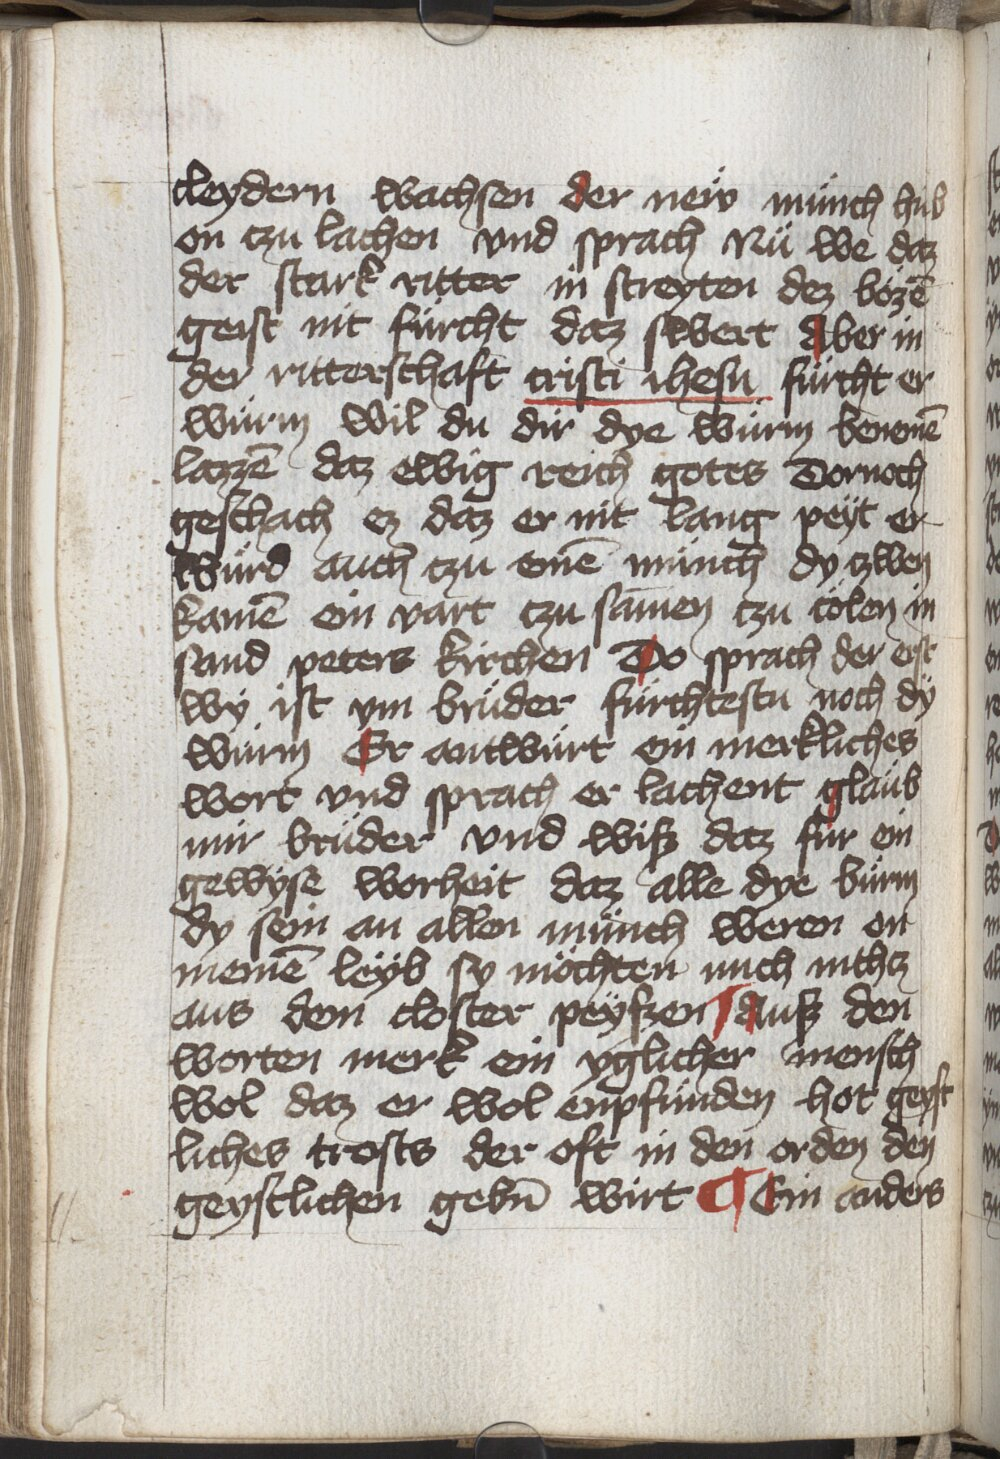 cleydern wachsen der new münch hub
on czu lachen vnd sprach Nü we daz
der stark ritter in streyten dez bözē
geist nit fürcht daz swert Aber in
der ritterschaft cristi ihesu fürcht er
würm Wil du dir dye würm benemē
lazzē daz ewig reich gotes Dornoch
geschach ez daz er nit lang peyt er
würd auch czu einē münch dy czwen
kamē ein vart czu samen czu cölen in
sand peters kirchen Do sprach der erst
wy ist ym brüder fürchtestu noch dy
würm Er antwürt ein merkliches
wort vnd sprach er lachent glaüb
mir brüder vnd wiß daz für ein
gewyse worheit daz alle dye bürm
dy sein an allen münch weren on
meinē leyb sy möchten mich nithz
aus dem closter peyszen Auß den
worten merk ein yglicher mensch
wol daz er wol enpfunden hot geyst
liches trosts der oft in den orden den
geystlichen gebn̄ wirt ¶ Ein anders